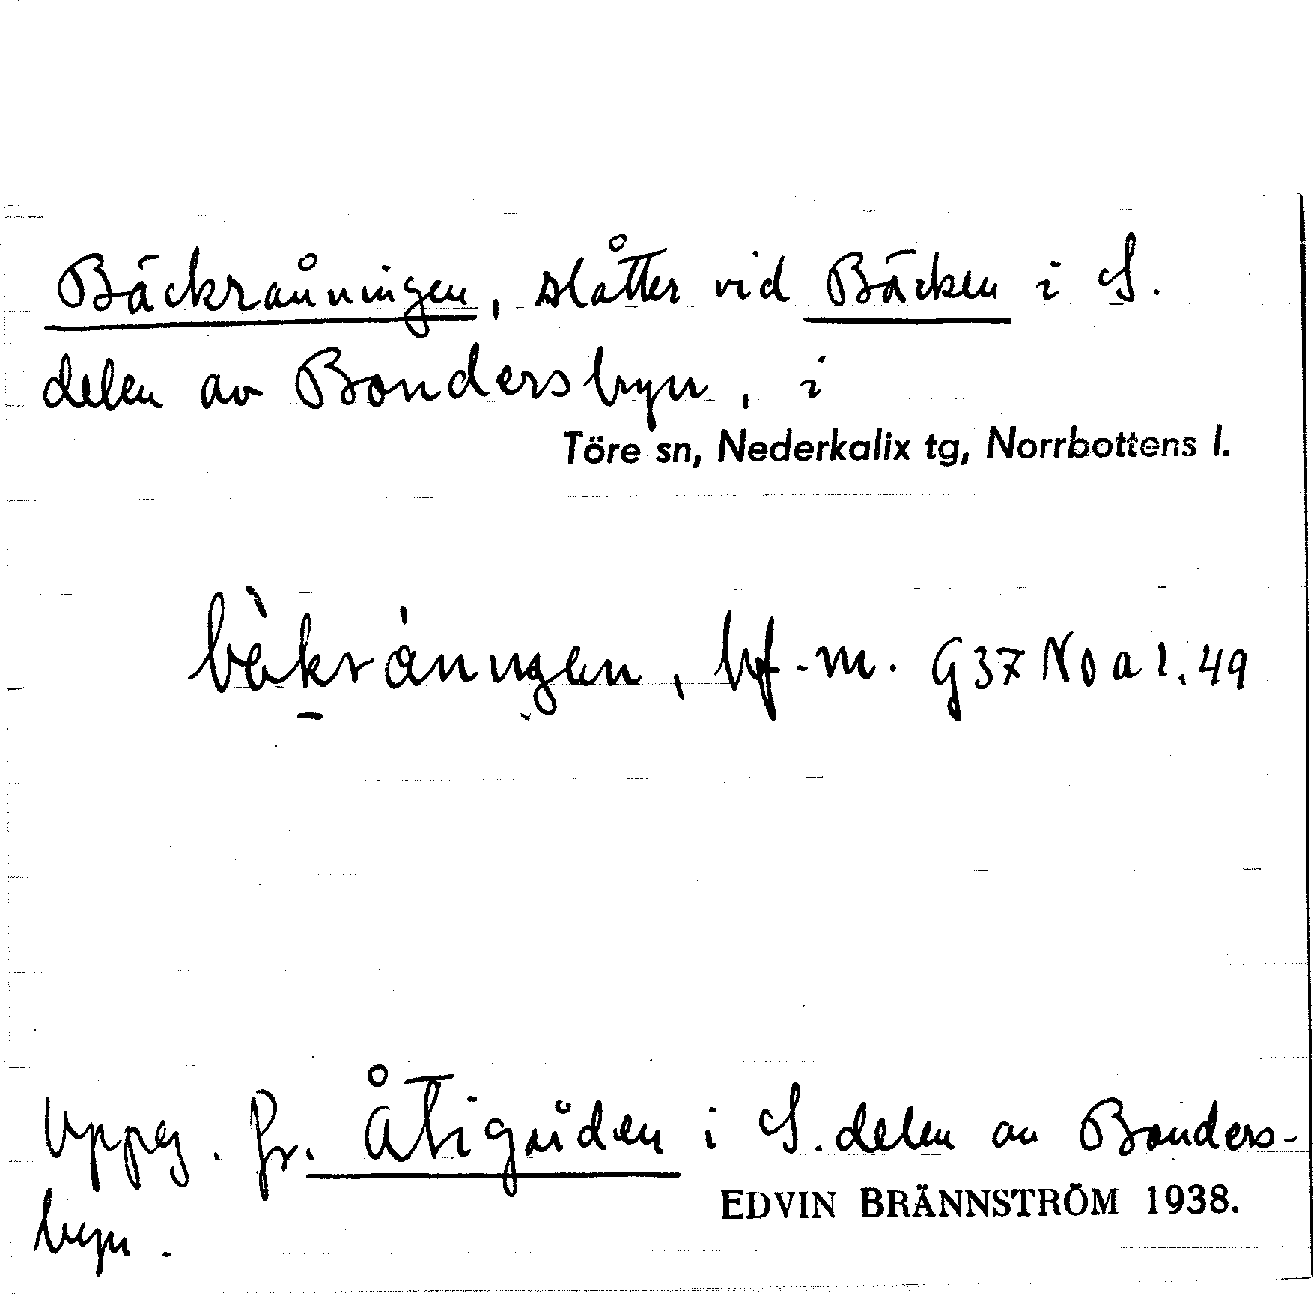 Bäckråningen, slåtter vid Bäcken i S.
delen av Bondersbyn, i
Töre sn, Nederkalix tg, Norrbottens l.
bèkråningen, bf. m. G37 No a 1.49
Uppg. fr. i S. delen av Bonders-
EDVIN BRÄNNSTRÖM 1938.
byn.